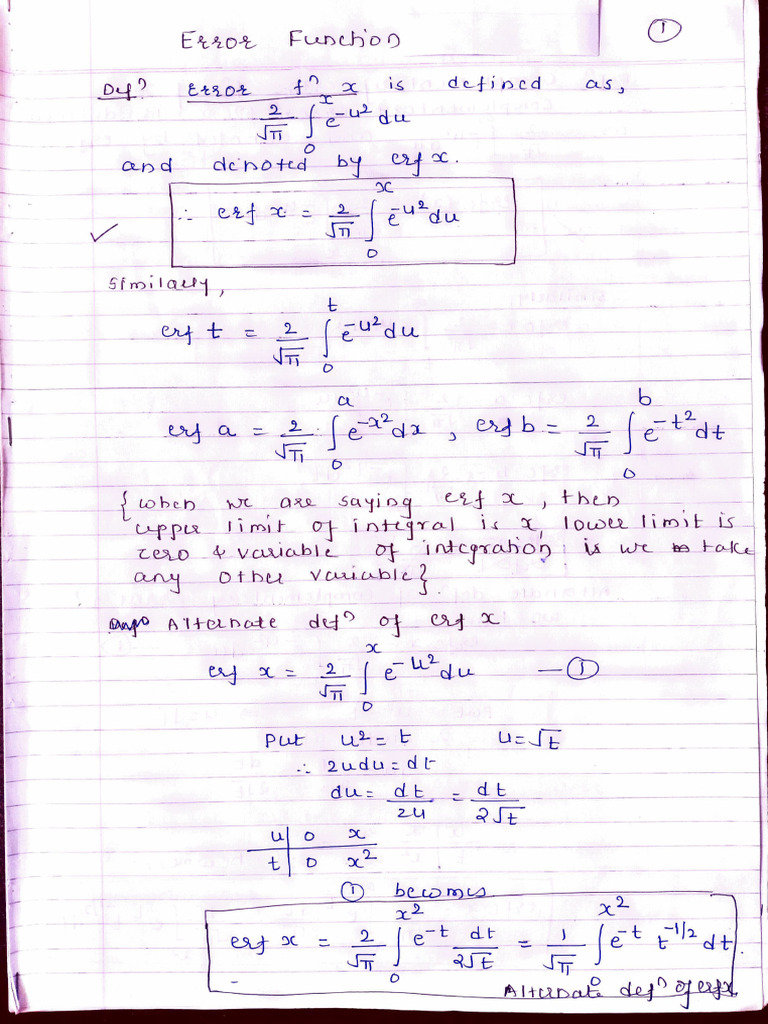 Error Function
①
Defⁿ Error fⁿ x is defined as,
2/√π ∫₀ˣ e^{-u²} du
and denoted by erf x.
∴ erf x = 2/√π ∫₀ˣ e^{-u²} du
Similarly,
erf t = 2/√π ∫₀ᵗ e^{-u²} du
erf a = 2/√π ∫₀ᵃ e^{-x²} dx , erf b = 2/√π ∫₀ᵇ e^{-t²} dt
{when we are saying erf x, then
upper limit of integral is x, lower limit is
zero & variable of integration is we take
any other variable}.
Alternate defⁿ of erf x
erf x = 2/√π ∫₀ˣ e^{-u²} du —①
Put u² = t u = √t
∴ 2udu = dt
du = dt/2u = dt/2√t
u | 0 x
t | 0 x²
① becomes
erf x = 2/√π ∫₀^{x²} e^{-t} dt/2√t = 1/√π ∫₀^{x²} e^{-t} t^{-1/2} dt.
Alternate defⁿ of erf x